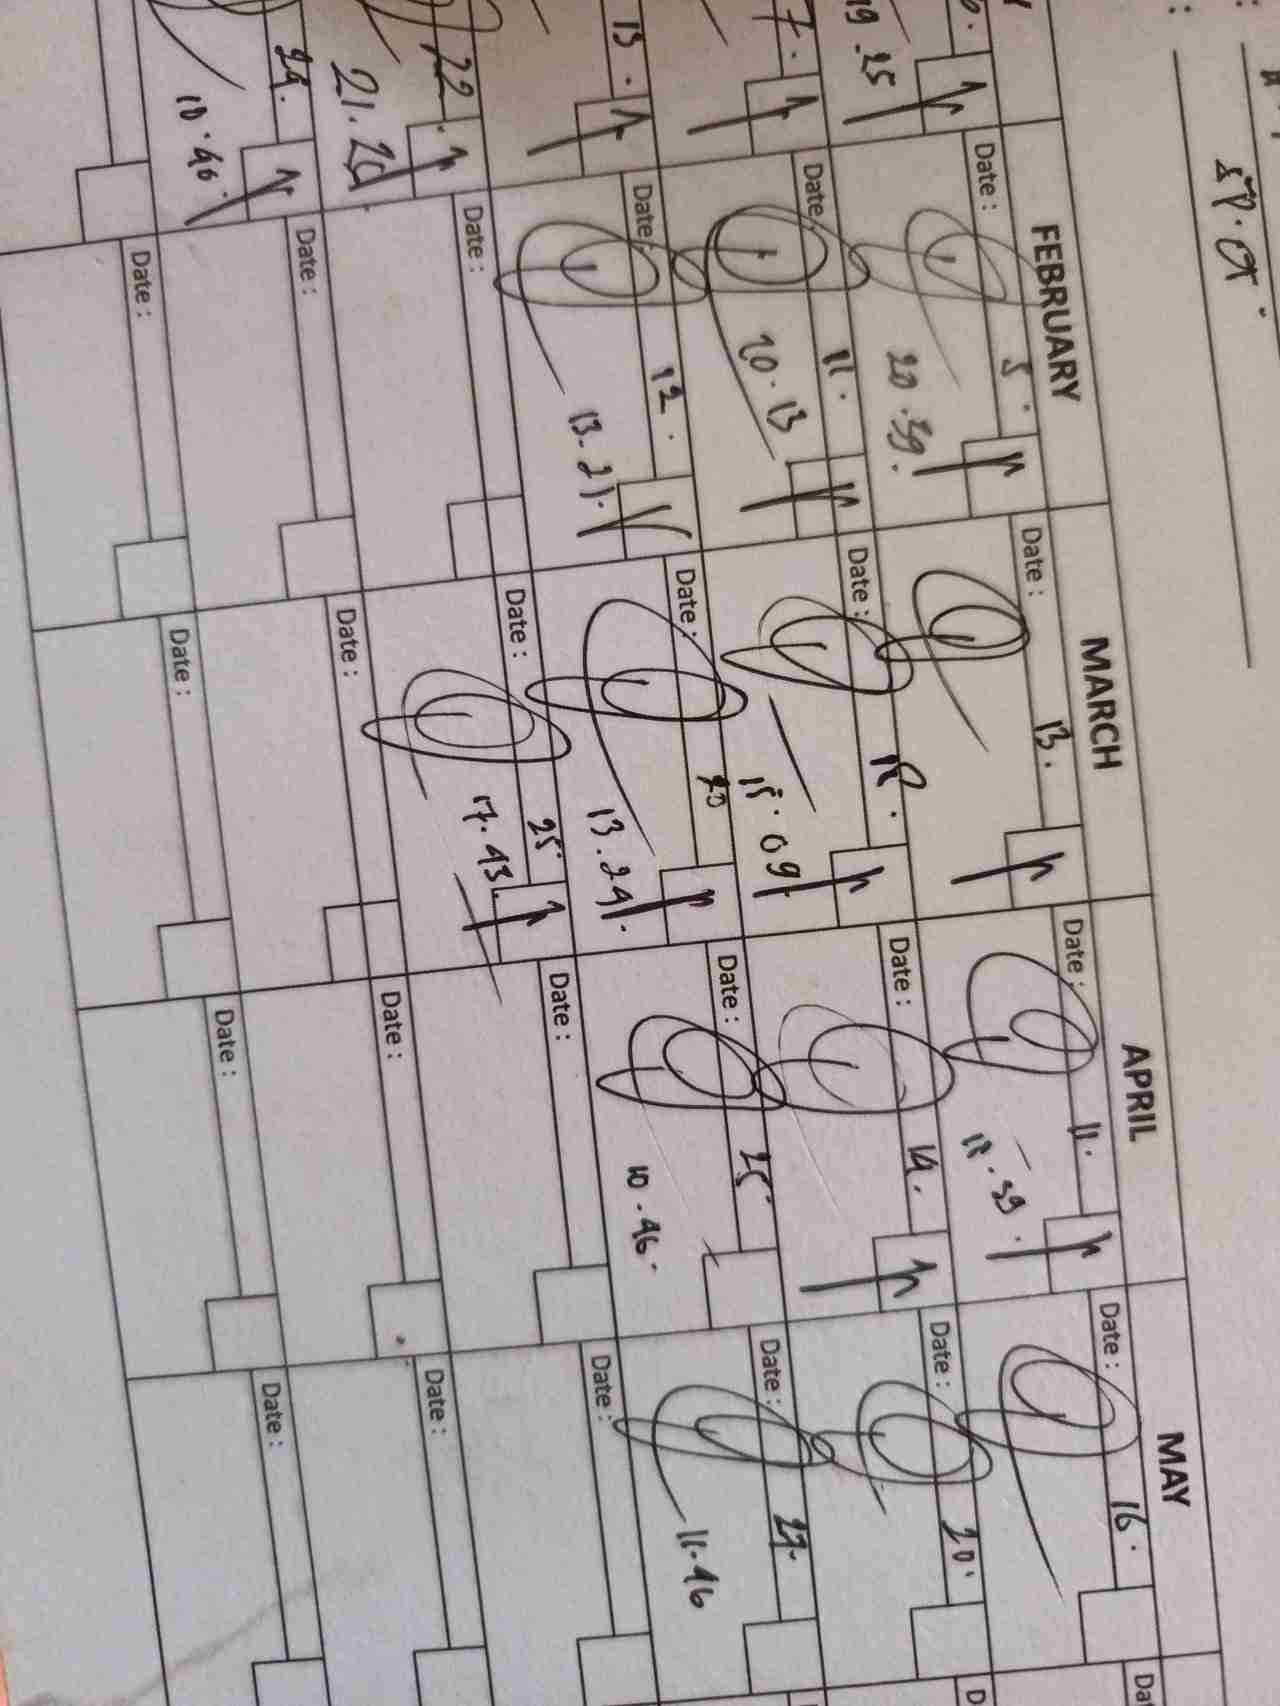 FEBRUARY MARCH APRIL MAY
19.25
Date: 5. Date: 13. Date: 11. Date: 16.
20.39. 18.39.
7. Date: 11. Date: 18. Date: 14. Date: 20.
20.13 15.09
13. Date: 12. Date: 20 Date: 25. Date: 27.
13.21. 13.24. 10.46. 11.46
22. Date: Date: 25. Date: Date:
17.43.
24. Date: Date: Date: Date:
10.46.
Date: Date: Date: Date: